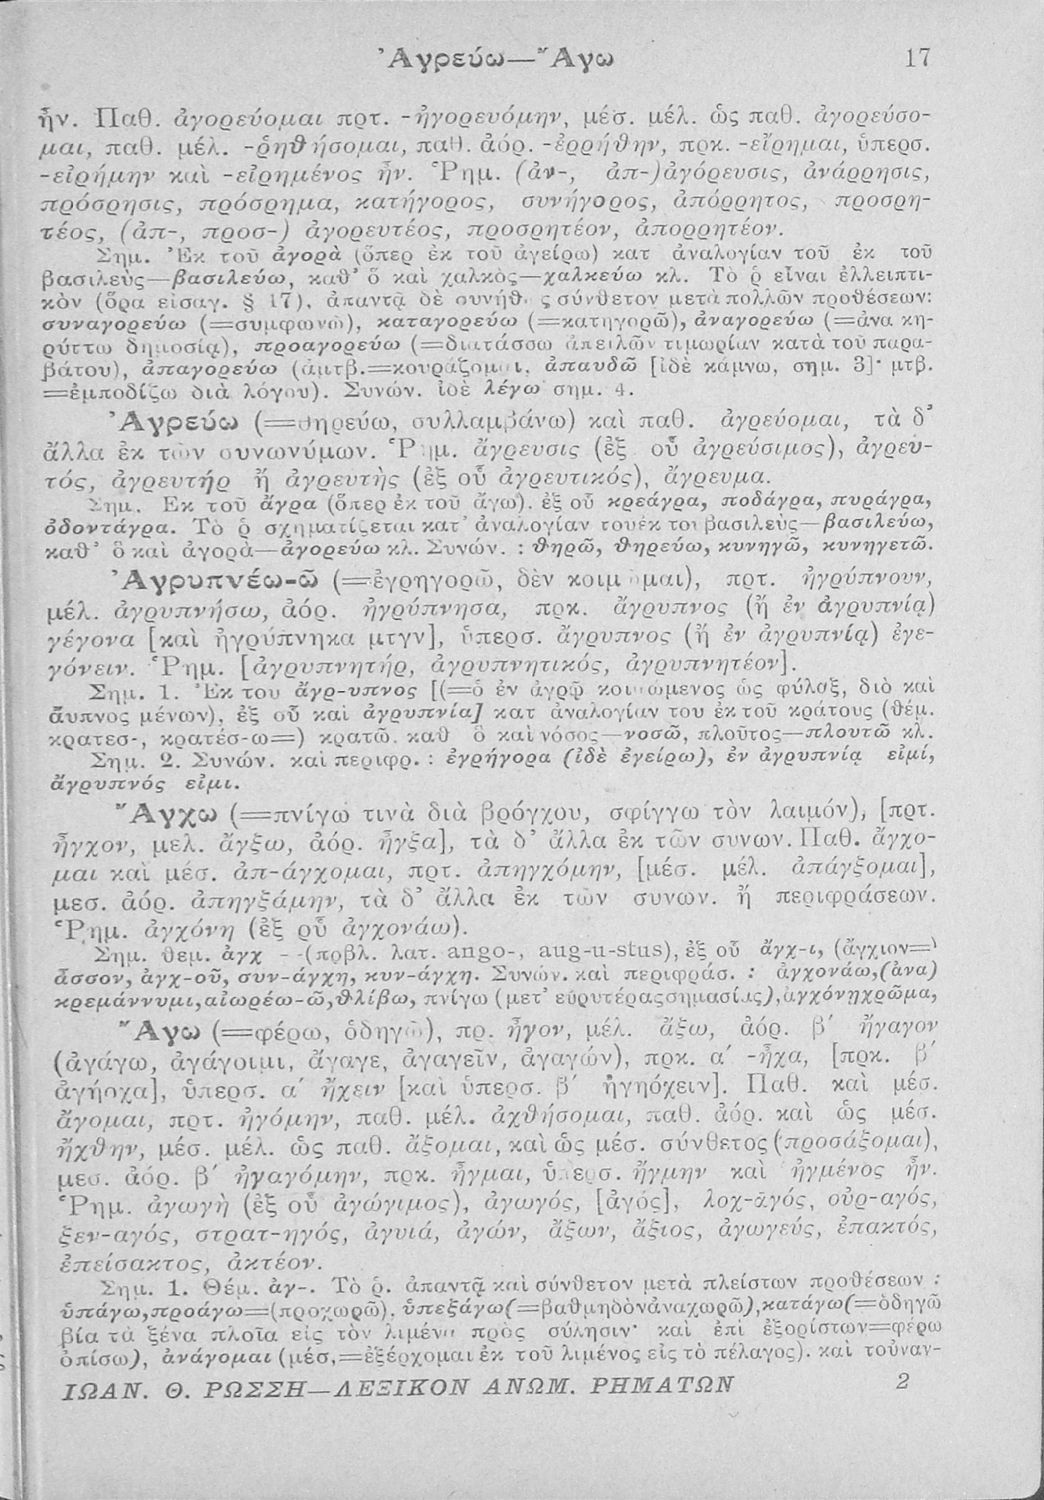 Ἀγρεύω—Ἄγω 17
ἦν. Παθ. ἀγορεύομαι πρτ. -ἠγορευόμην, μέσ. μέλ. ὡς παθ. ἀγορεύσο-
μαι, παθ. μέλ. -ῥηθήσομαι, παθ. ἀόρ. -ἐρρήθην, πρκ. -εἴρημαι, ὑπερσ.
-εἰρήμην καὶ -εἰρημένος ἦν. Ῥημ. (ἀν-, ἀπ-)αγόρευσις, ἀνάρρησις,
πρόσρησις, πρόσρημα, κατήγορος, συνήγορος, ἀπόρρητος, προσρη-
τέος, (ἀπ-, προσ-) ἀγορευτέος, προσρητέον, ἀπορρητέον.
Σημ. Ἐκ τοῦ ἀγορὰ (ὅπερ ἐκ τοῦ ἀγείρω) κατ ἀναλογίαν τοῦ ἐκ τοῦ
βασιλεὺς—βασιλεύω, καθ' ὃ καὶ χαλκὸς—χαλκεύω κλ. Τὸ ῥ εἶναι ἐλλειπτι-
κὸν (ὅρα εἰσαγ. § 17), ἀπαντᾷ δὲ συνήθ ς σύνθετον μετὰ πολλῶν προθέσεων:
συναγορεύω (=συμφωνῶ), καταγορεύω (=κατηγορῶ), ἀναγορεύω (=ἀνα κη-
ρύττω δημοσίᾳ), προαγορεύω (=διατάσσω ἀπειλῶν τιμωρίαν κατὰ τοῦ παρα-
βάτου), ἀπαγορεύω (ἀμτβ.=κουράζομαι, ἀπαυδῶ [ἰδὲ κάμνω, σημ. 3]· μτβ.
=ἐμποδίζω διὰ λόγου). Συνών. ἰδὲ λέγω σημ. 4.
Ἀγρεύω (=θηρεύω, συλλαμβάνω) καὶ παθ. ἀγρεύομαι, τὰ δ'
ἄλλα ἐκ τῶν συνωνύμων. Ῥημ. ἄγρευσις (ἐξ οὗ ἀγρεύσιμος), ἀγρευ-
τός, ἀγρευτήρ ἢ ἀγρευτὴς (ἐξ οὗ ἀγρευτικός), ἄγρευμα.
Σημ. Ἐκ τοῦ ἄγρα (ὅπερ ἐκ τοῦ ἄγω). ἐξ οὗ κρεάγρα, ποδάγρα, πυράγρα,
ὀδοντάγρα. Τὸ ῥ σχηματίζεται κατ' ἀναλογίαν τοῦ ἐκ τοῦ βασιλεὺς—βασιλεύω,
καθ' ὃ καὶ ἀγορὰ—ἀγορεύω κλ. Συνών. : θηρῶ, θηρεύω, κυνηγῶ, κυνηγετῶ.
Ἀγρυπνέω-ῶ (=ἐγρηγορῶ, δὲν κοιμῶμαι), πρτ. ἠγρύπνουν,
μέλ. ἀγρυπνήσω, ἀόρ. ἠγρύπνησα, πρκ. ἄγρυπνος (ἢ ἐν ἀγρυπνίᾳ)
γέγονα [καὶ ἠγρύπνηκα μτγν], ὑπερσ. ἄγρυπνος (ἢ ἐν ἀγρυπνίᾳ) ἐγε-
γόνειν. Ῥημ. [ἀγρυπνητήρ, ἀγρυπνητικός, ἀγρυπνητέον].
Σημ. 1. Ἐκ του ἄγρ-υπνος [(=ὁ ἐν ἀγρῷ κοιμώμενος ὡς φύλαξ, διὸ καὶ
ἄυπνος μένων), ἐξ οὗ καὶ ἀγρυπνία] κατ ἀναλογίαν του ἐκ τοῦ κράτους (θέμ.
κρατεσ-, κρατέσ-ω=) κρατῶ. καθ ὃ καὶ νόσος—νοσῶ, πλοῦτος—πλουτῶ κλ.
Σημ. 2. Συνών. καὶ περιφρ. : ἐγρήγορα (ἰδὲ ἐγείρω), ἐν ἀγρυπνίᾳ εἰμί,
ἄγρυπνός εἰμι.
Ἄγχω (=πνίγω τινὰ διὰ βρόγχου, σφίγγω τὸν λαιμόν), [πρτ.
ἦγχον, μελ. ἄγξω, ἀόρ. ἦγξα], τὰ δ' ἄλλα ἐκ τῶν συνων. Παθ. ἄγχο-
μαι καὶ μέσ. ἀπ-άγχομαι, πρτ. ἀπηγχόμην, [μέσ. μέλ. ἀπάγξομαι],
μεσ. ἀόρ. ἀπηγξάμην, τὰ δ' ἄλλα ἐκ τῶν συνων. ἢ περιφράσεων.
Ῥημ. ἀγχόνη (ἐξ οὗ ἀγχονάω).
Σημ. θεμ. ἀγχ - -(πρβλ. λατ. ango-, aug-u-stus), ἐξ οὗ ἄγχ-ι, (ἄγχιον=)
ἆσσον, ἀγχ-οῦ, συν-άγχη, κυν-άγχη. Συνών. καὶ περιφράσ. : ἀγχονάω,(ἀνα)
κρεμάννυμι,αἰωρέω-ῶ,θλίβω, πνίγω (μετ' εὐρυτέρας σημασίας),ἀγχόνῃ χρῶμαι,
Ἄγω (=φέρω, ὁδηγῶ), πρ. ἦγον, μέλ. ἄξω, ἀόρ. β' ἤγαγον
(ἀγάγω, ἀγάγοιμι, ἄγαγε, ἀγαγεῖν, ἀγαγών), πρκ. α' -ἦχα, [πρκ. β'
ἀγήοχα], ὑπερσ. α' ἤχειν [καὶ ὑπερσ. β' ἠγηόχειν]. Παθ. καὶ μέσ.
ἄγομαι, πρτ. ἠγόμην, παθ. μέλ. ἀχθήσομαι, παθ. ἀόρ. καὶ ὡς μέσ.
ἤχθην, μέσ. μέλ. ὡς παθ. ἄξομαι, καὶ ὡς μέσ. σύνθετος (προσάξομαι),
μεσ. ἀόρ. β' ἠγαγόμην, πρκ. ἦγμαι, ὑπερσ. ἤγμην καὶ ἠγμένος ἦν.
Ῥημ. ἀγωγὴ (ἐξ οὗ ἀγώγιμος), ἀγωγός, [ἀγός], λοχ-αγός, οὐρ-αγός,
ξεν-αγός, στρατ-ηγός, ἀγυιά, ἀγών, ἄξων, ἄξιος, ἀγωγεύς, ἐπακτός,
ἐπείσακτος, ἀκτέον.
Σημ. 1. Θέμ. ἀγ-. Τὸ ῥ. ἀπαντᾷ καὶ σύνθετον μετὰ πλείστων προθέσεων :
ὑπάγω,προάγω=(προχωρῶ), ὑπεξάγω(=βαθμηδὸν ἀναχωρῶ),κατάγω(=ὁδηγῶ
βίᾳ τὰ ξένα πλοῖα εἰς τὸν λιμένα πρὸς σύλησιν· καὶ ἐπὶ ἐξορίστων=φέρω
ὀπίσω), ἀνάγομαι (μέσ,=ἐξέρχομαι ἐκ τοῦ λιμένος εἰς τὸ πέλαγος). καὶ τοὐναν-
ΙΩΑΝ. Θ. ΡΩΣΣΗ—ΛΕΞΙΚΟΝ ΑΝΩΜ. ΡΗΜΑΤΩΝ 2